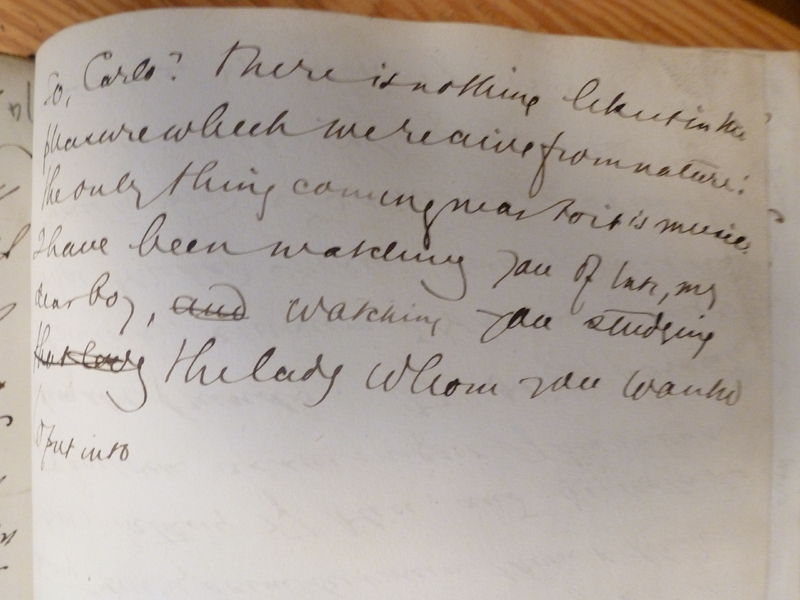 So, Carlo? There is nothing like it in the
pleasure which we receive from nature:
the only thing coming near to it is music.
I have been watching you of late, my
dear boy, and watching you studying
that lady the lady whom you wanted
to put into